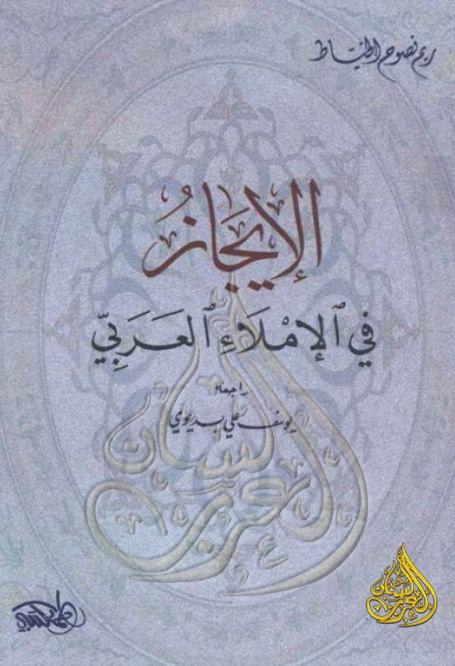 ريم نصوح الخياط
الإيجازُ
في الإمْلَاءِ العَرَبيّ
راجعه
يوسف علي بديوي
لسان
العرب
لسان
العرب